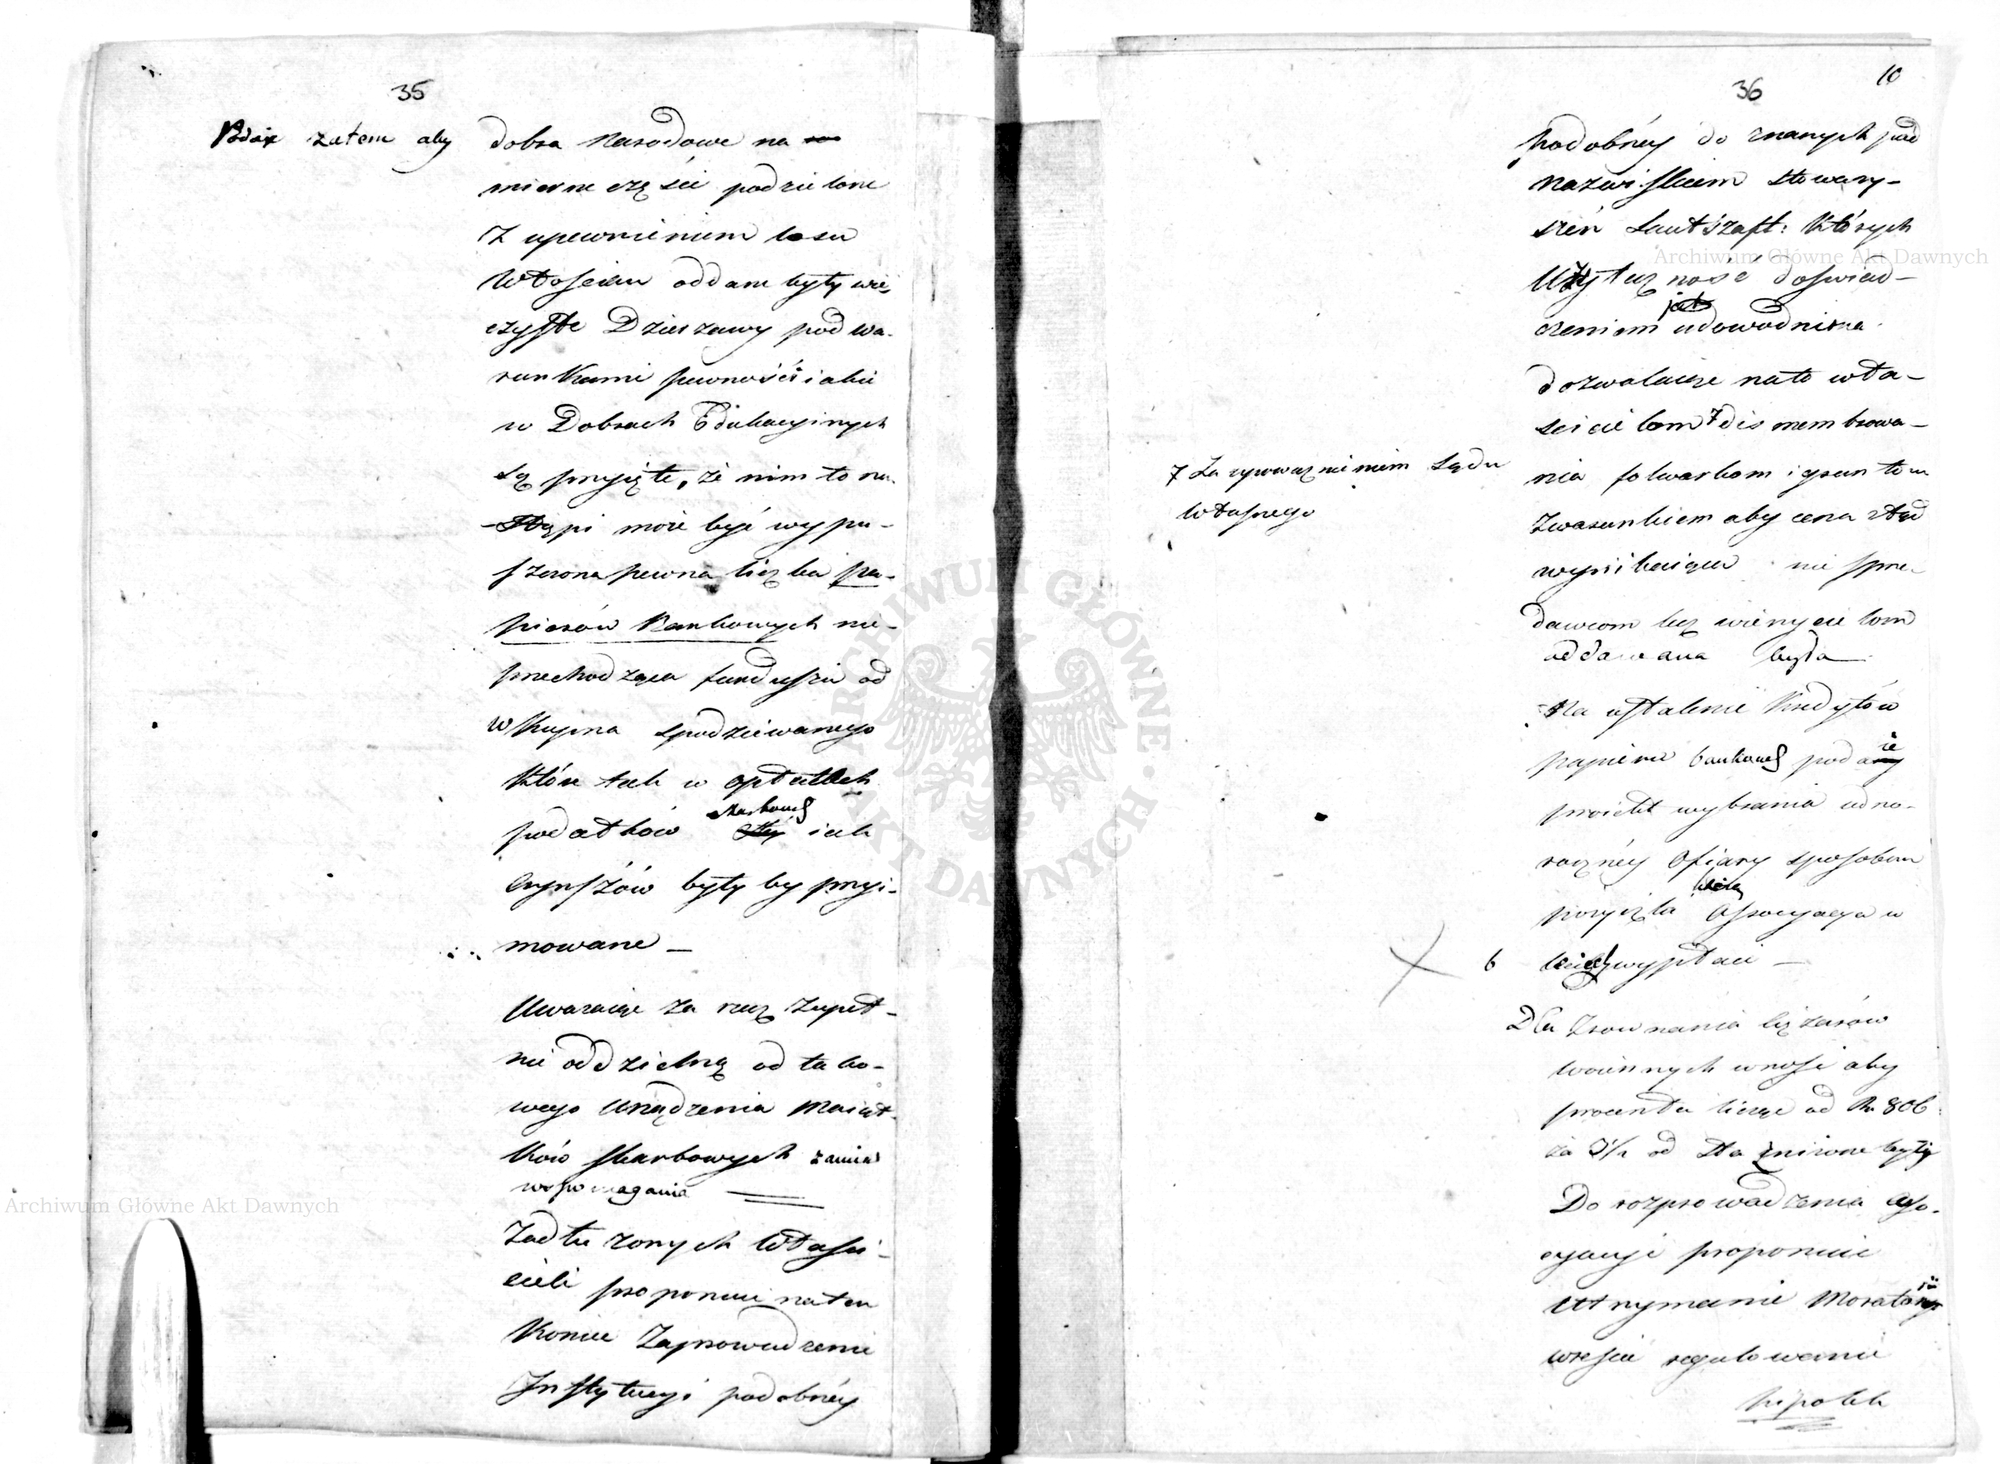 35
zatem aby dobra Narodowe na
mierne części podzielone
Z upewnieniem losu
Włościan oddane były wie-
czyste Dzierzawy pod wa-
runkami pewności iakie
w Dobrach Edukacyinych
są przyięte, że nim to na-
stąpi może być wypu-
szczona pewna liczba pa-
pierów Bankowych nie-
przechodząca funduszu od
Wkupna spodziewanego
Które tak w opłatach
podatków skarbowych iak
czynszów były by przyi-
mowane –
Uwazaiąc za rzecz zupeł-
nie oddzielną od tako-
wego Urządzenia Maiąt-
ków skarbowych zamiar
wspomagania
Zadłuzonych Właści-
cieli proponuie na ten
Koniec Zaprowadzenie
Instytucyi podobnéy
36
10
podobnéy do znanych pod
nazwiskiem stowarzy-
szeń Landszaft: których
Użyteczność doświad-
czeniem udowodniona
dozwalaiąc na to wła-
ścicielom 7 dismembrowa-
nia folwarkom i gruntom
Z warunkiem aby cena ztąd
wynikaiąca nie sprze-
dawcom lecz wierzycielom
oddawana była
7 Za upoważnieniem Sądu
Własnego
Na ustalenie Kredytów
papierów bankowych podaie
proiekt wybrania iedno-
roczney Ofiary sposobem
pożyczki którą Assocyacya w
6 wypłaci –
Dla Zrównania ciężarów
woiennych wnosi aby
procenta licząc od Ru 806
za od sta zniżone były
Do rozprowadzenia Asso-
cyacyi proponuie
Utrzymanie Moratorii
wreście regulowanie
hipotek
Archiwum Główne Akt Dawnych
Archiwum Główne Akt Dawnych
ARCHIWUM GŁÓWNE AKT DAWNYCH